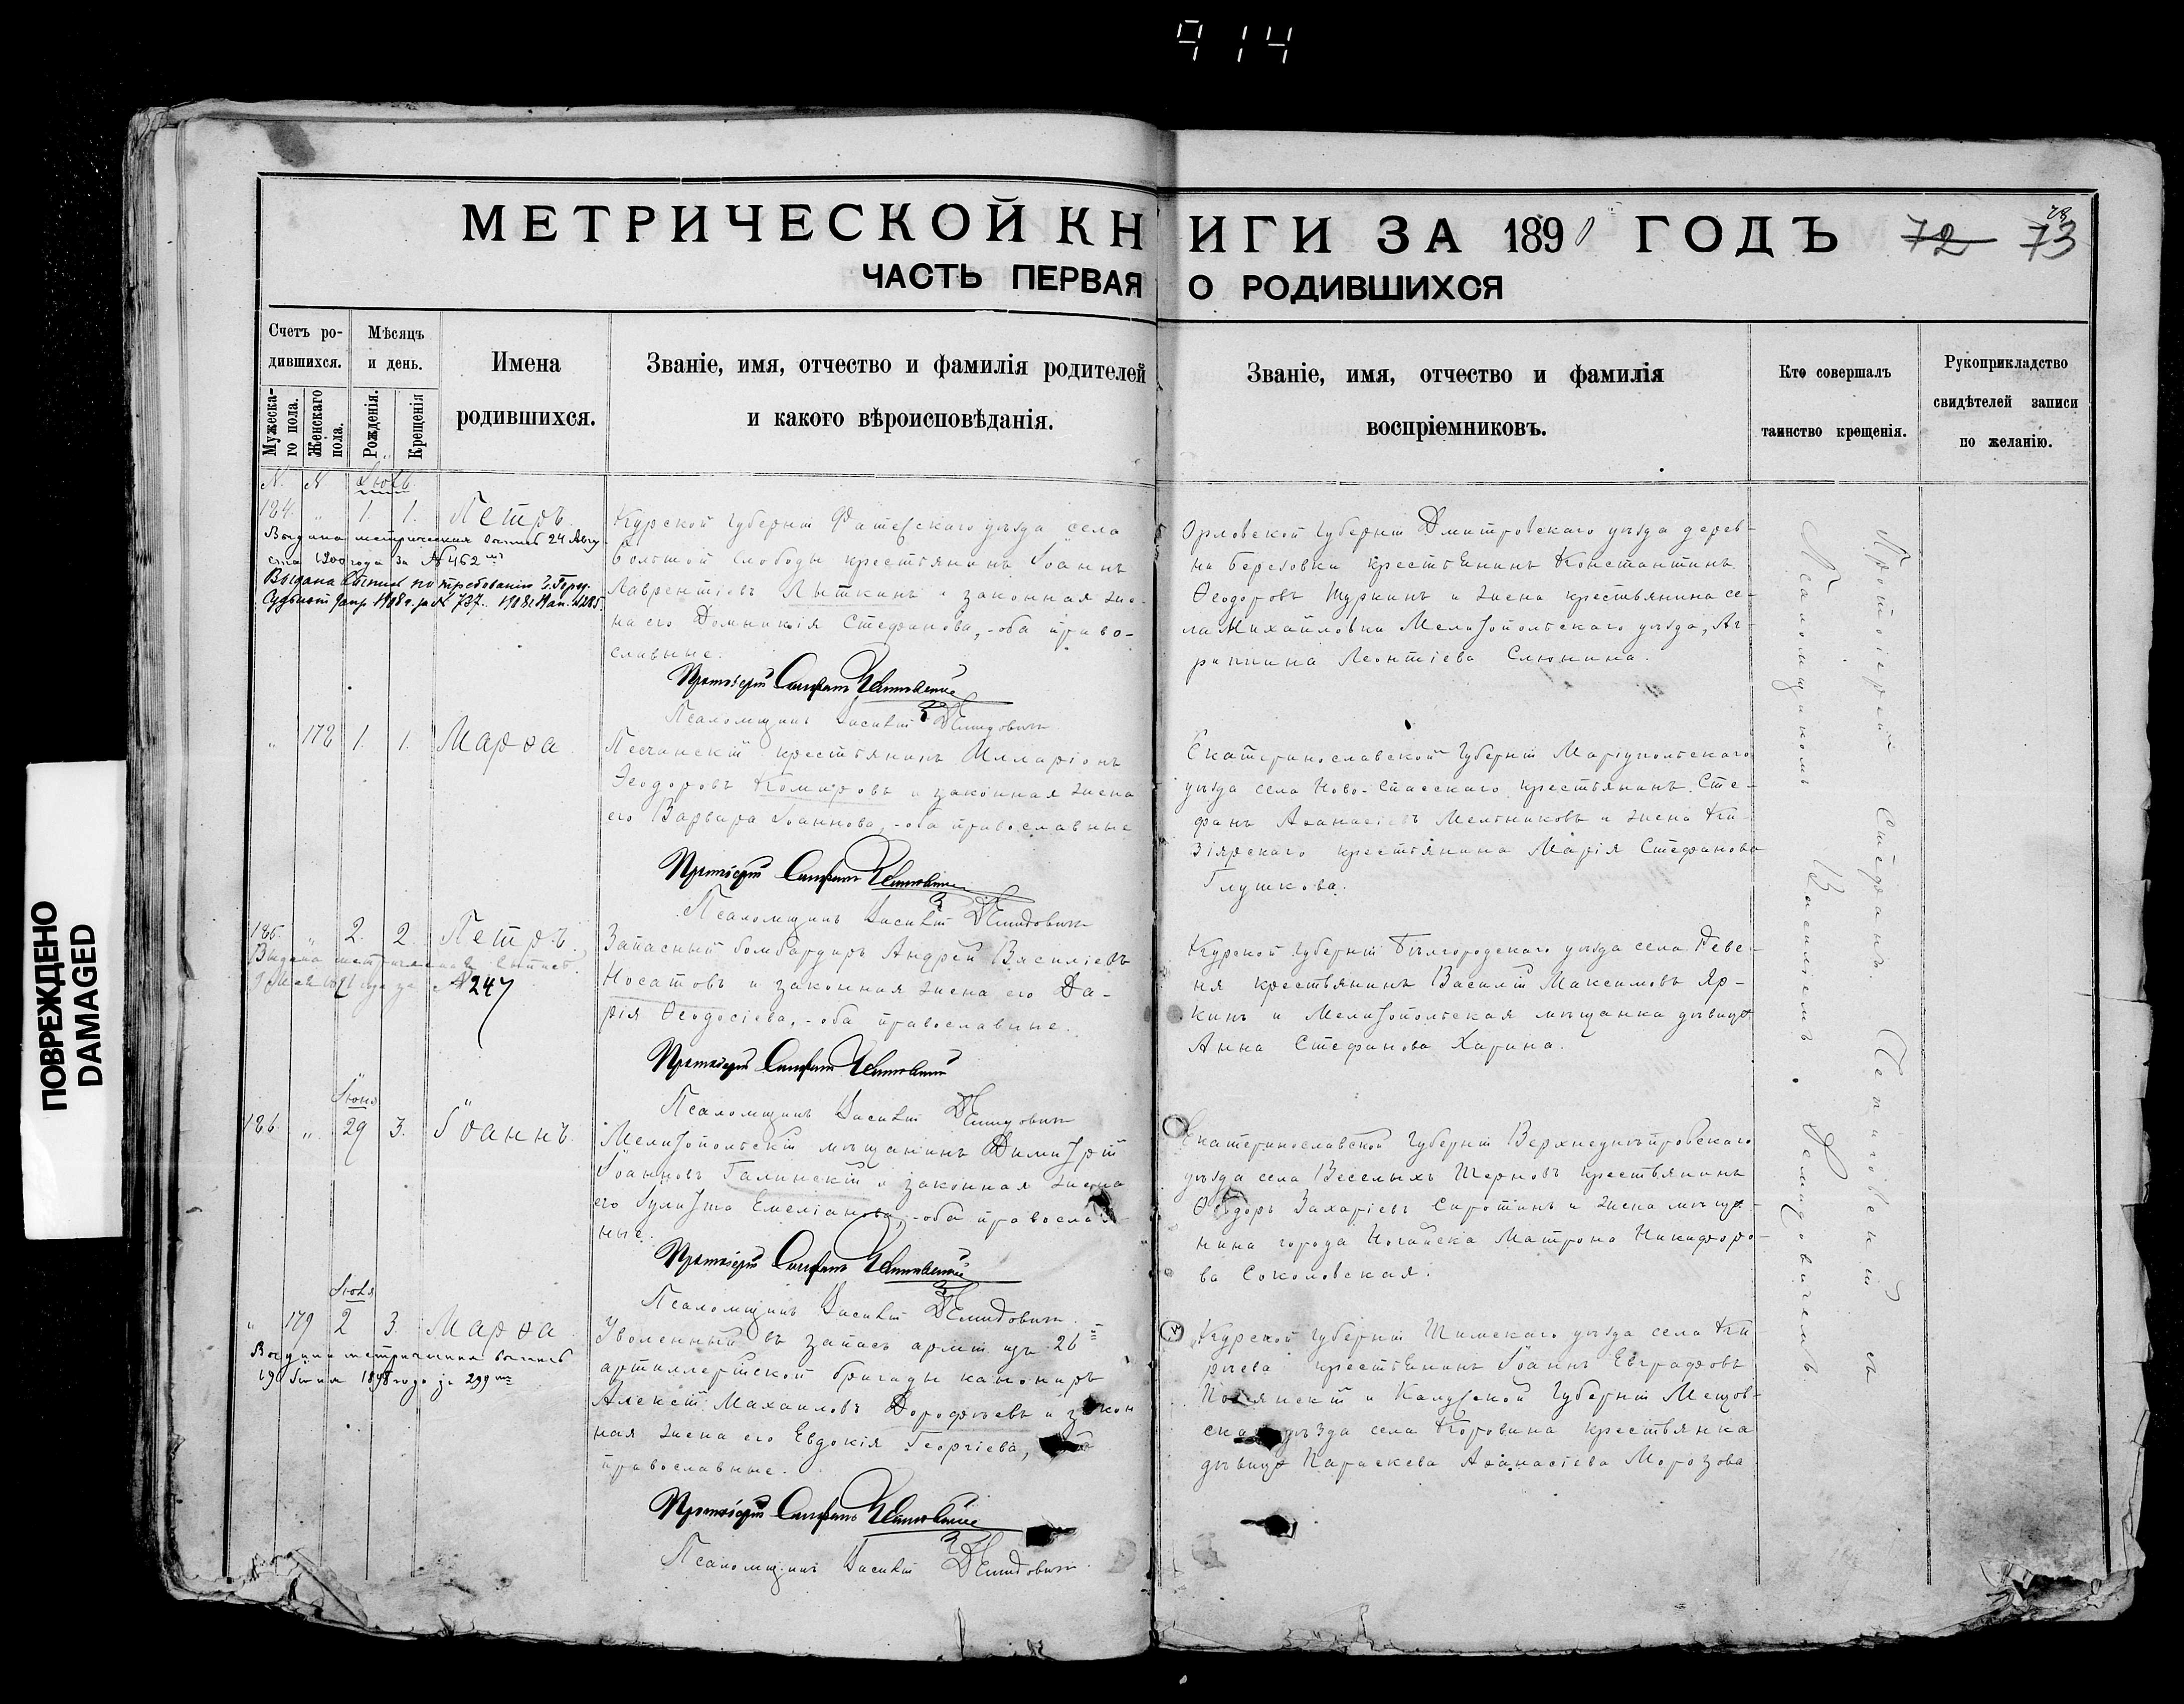 914
МЕТРИЧЕСКОЙ КНИГИ ЗА 1890 ГОДЪ
72 73
ЧАСТЬ ПЕРВАЯ О РОДИВШИХСЯ
Счетъ ро-
дившихся.
Мужеска-
го пола.
Женскаго
пола.
Мѣсяцъ
и день.
Рожденія.
Крещенія
Имена
родившихся.
Званіе, имя, отчество и фамилія родителей
и какого вѣроисповѣданія.
Званіе, имя, отчество и фамилія
воспріемниковъ.
Кто совершалъ
таинство крещенія.
Рукоприкладство
свидѣтелей записи
по желанію.
N. N Іюль
184. " 1. 1. Петръ.
Выдана метрическая выпись 24 Авгу
ста 1900 года за № 462
Выдана выпись по требованію
737.
Курской губерніи Фатежскаго уѣзда села
большой слободы крестьянинъ Іоаннъ
Лаврентіевъ Лыткинъ и законная же-
на его Домникія Стефанова, - оба право-
славные.
Протоіерей Стефанъ
Псаломщикъ Василій Демидовичъ
Орловской губерніи Дмитровскаго уѣзда дерев-
ни березовки крестьянинъ Константинъ
Ѳеодоровъ Шуркинъ и жена крестьянина се-
ла Михайловки Мелитопольскаго уѣзда, Аг-
риппина Леонтіева Слюнина.
" 178 1. 1. Марѳа
Песчанскій крестьянинъ Илларіонъ
Ѳеодоровъ Комаровъ и законная жена
его Варвара Іоаннова, - оба православные
Протоіерей Стефанъ
Псаломщикъ Василій Демидовичъ
Екатеринославской губерніи Маріупольскаго
уѣзда села Ново-Спасскаго крестьянинъ Сте-
фанъ Аѳанасіевъ Мельниковъ и жена Ки-
зіярскаго крестьянина Марія Стефанова
Глушкова.
185. " 2. 2. Петръ.
Выдана метрическая выпись.
№ 247
Запасный бомбардиръ Андрей Василіевъ
Носатовъ и законная жена его Да-
рія Ѳеодосіева, - оба православные.
Протоіерей Стефанъ
Псаломщикъ Василій Демидовичъ
Курской губерніи Бѣлгородскаго уѣзда села Неве-
ня крестьянинъ Василій Максимовъ Яр-
кинъ и Мелитопольская мѣщанка дѣвица
Анна Стефанова Харина.
Іюня
186. " 29 3. Іоаннъ.
Мелитопольскій мѣщанинъ Димитрій
Іоанновъ Галинскій и законная жена
его Іулитта Емеліанова, - оба православ
ные.
Протоіерей Стефанъ
Псаломщикъ Василій Демидовичъ.
Екатеринославской губерніи Верхнеднѣпровскаго
уѣзда села Веселыхъ Терновъ крестьянинъ
Ѳеодоръ Захаріевъ Сиротинъ и жена мѣща-
нина города Ногайска Матрона Никифоро-
ва Соколовская.
Іюля
" 179 2 3. Марѳа
Выдана метрическая выпись
19 Іюня 1898 года за 299
Уволенный въ запасъ арміи изъ 26
артиллерійской бригады канониръ
Алексій Махаиловъ Дорофѣевъ и закон
ная жена его Евдокія Георгіева,
православные.
Протоіерей Стефанъ
Псаломщикъ Василій Демидовичъ.
Курской губерніи Тимскаго уѣзда села Ки
рѣева крестьянинъ Іоаннъ Евграфовъ
и Калужской губерніи Мещов-
уѣзда села Коровина крестьянка
дѣвица Параскева Аѳанасіева Морозова
Протоіерей Стефанъ
Псаломщикомъ Василіемъ Демидовичемъ.
ПОВРЕЖДЕНО
DAMAGED